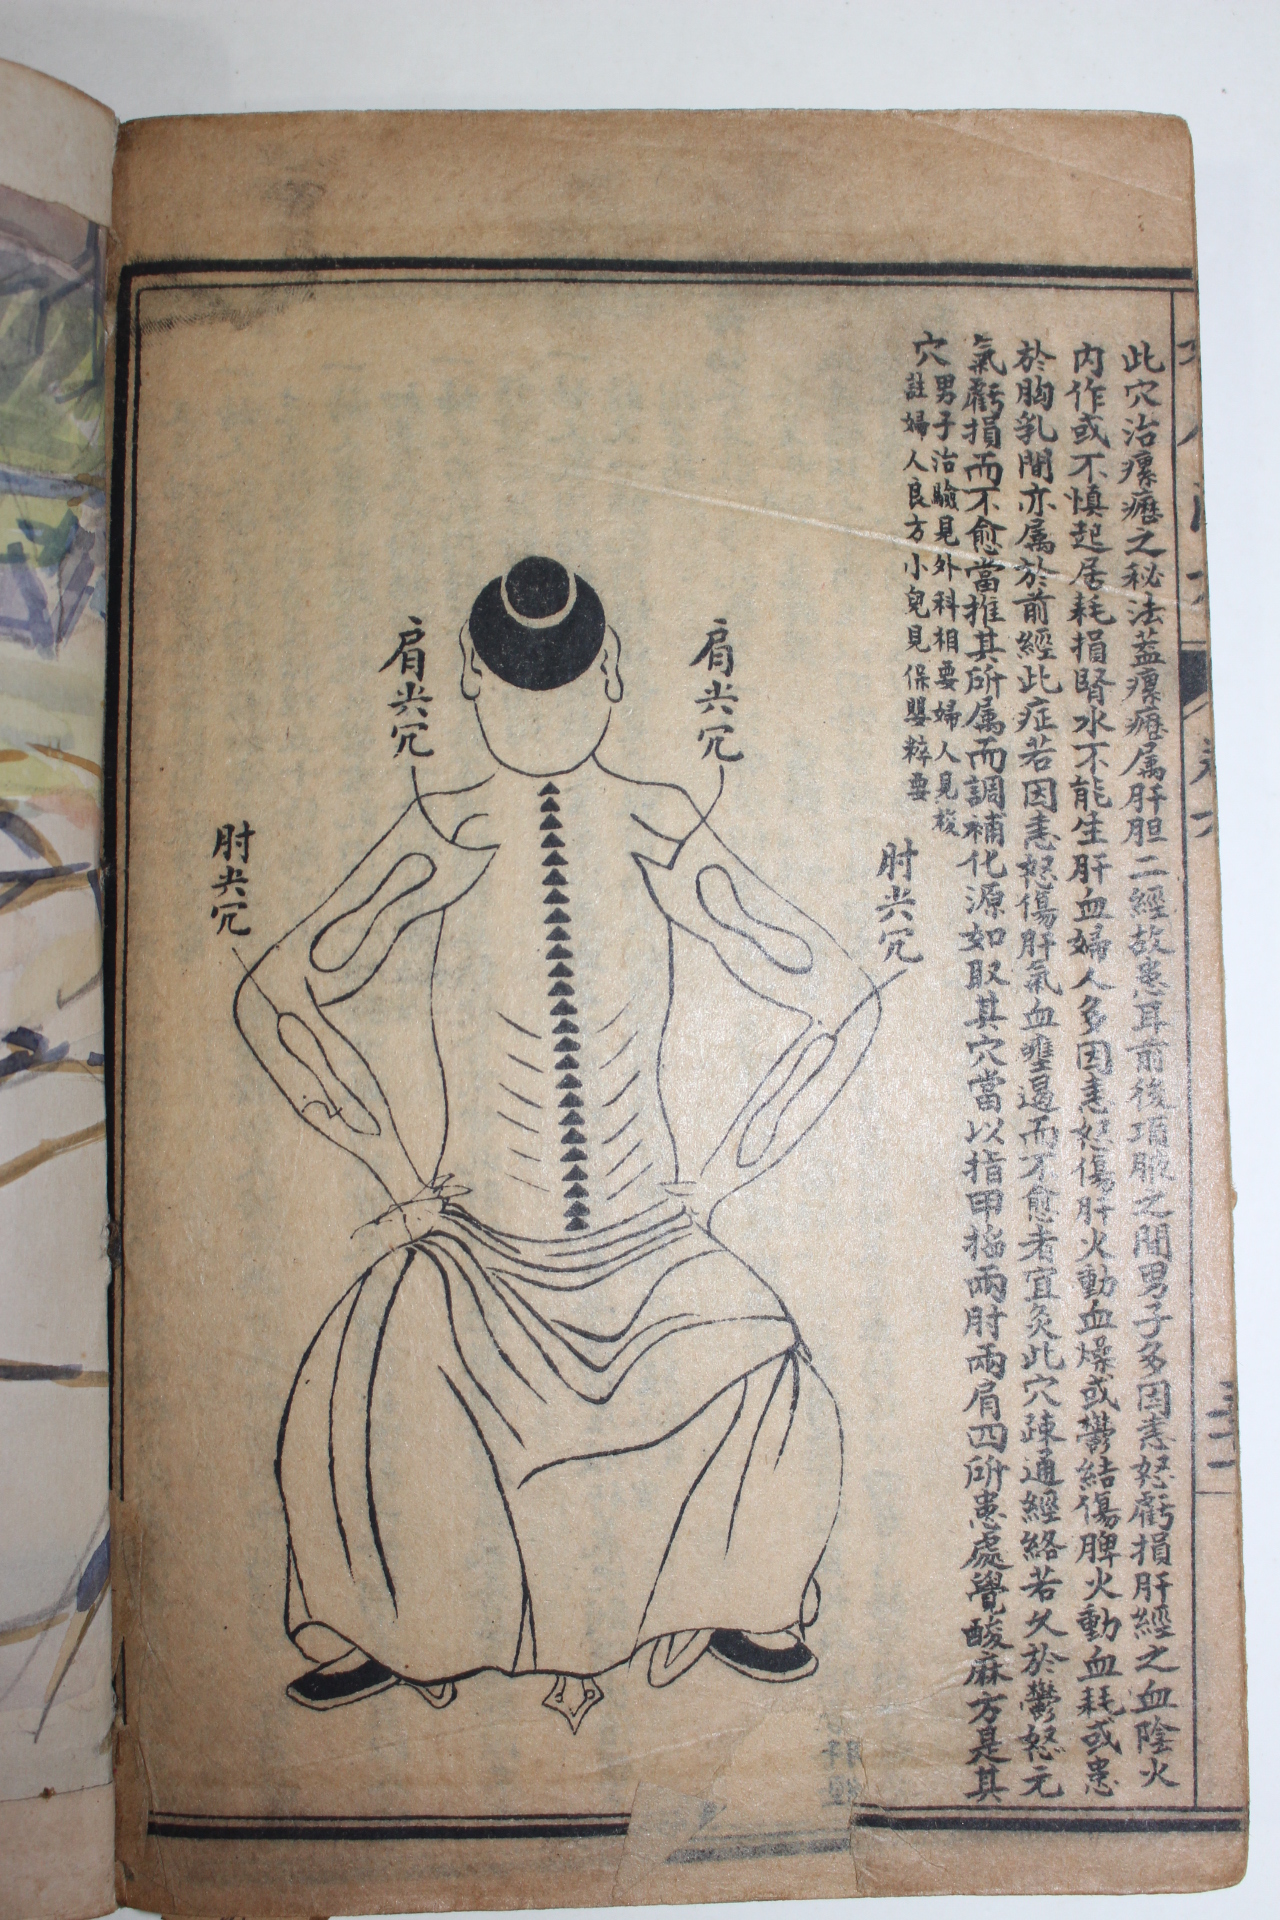 此穴治瘰癧之秘法蓋瘰癧属肝胆二經故患耳前後項腋之間男子多因恚怒虧損肝經之血陰火
内作或不慎起居耗損腎水不能生肝血婦人多因恚怒傷肝火動血燥或鬱結傷脾火動血耗或患
於胸乳間亦属於前經此症若因恚怒傷肝氣血壅遏而不愈者宜灸此穴疎通經絡若久於鬱怒元
氣虧損而不愈當推其所属而調補化源如取其穴當以指甲掐兩肘兩肩四所患處覺酸麻方是其
穴
男子治驗見外科相要婦人見校
註婦人良方小兒見保嬰粹要
肘尖穴
肩尖穴
肩尖穴
肘尖穴